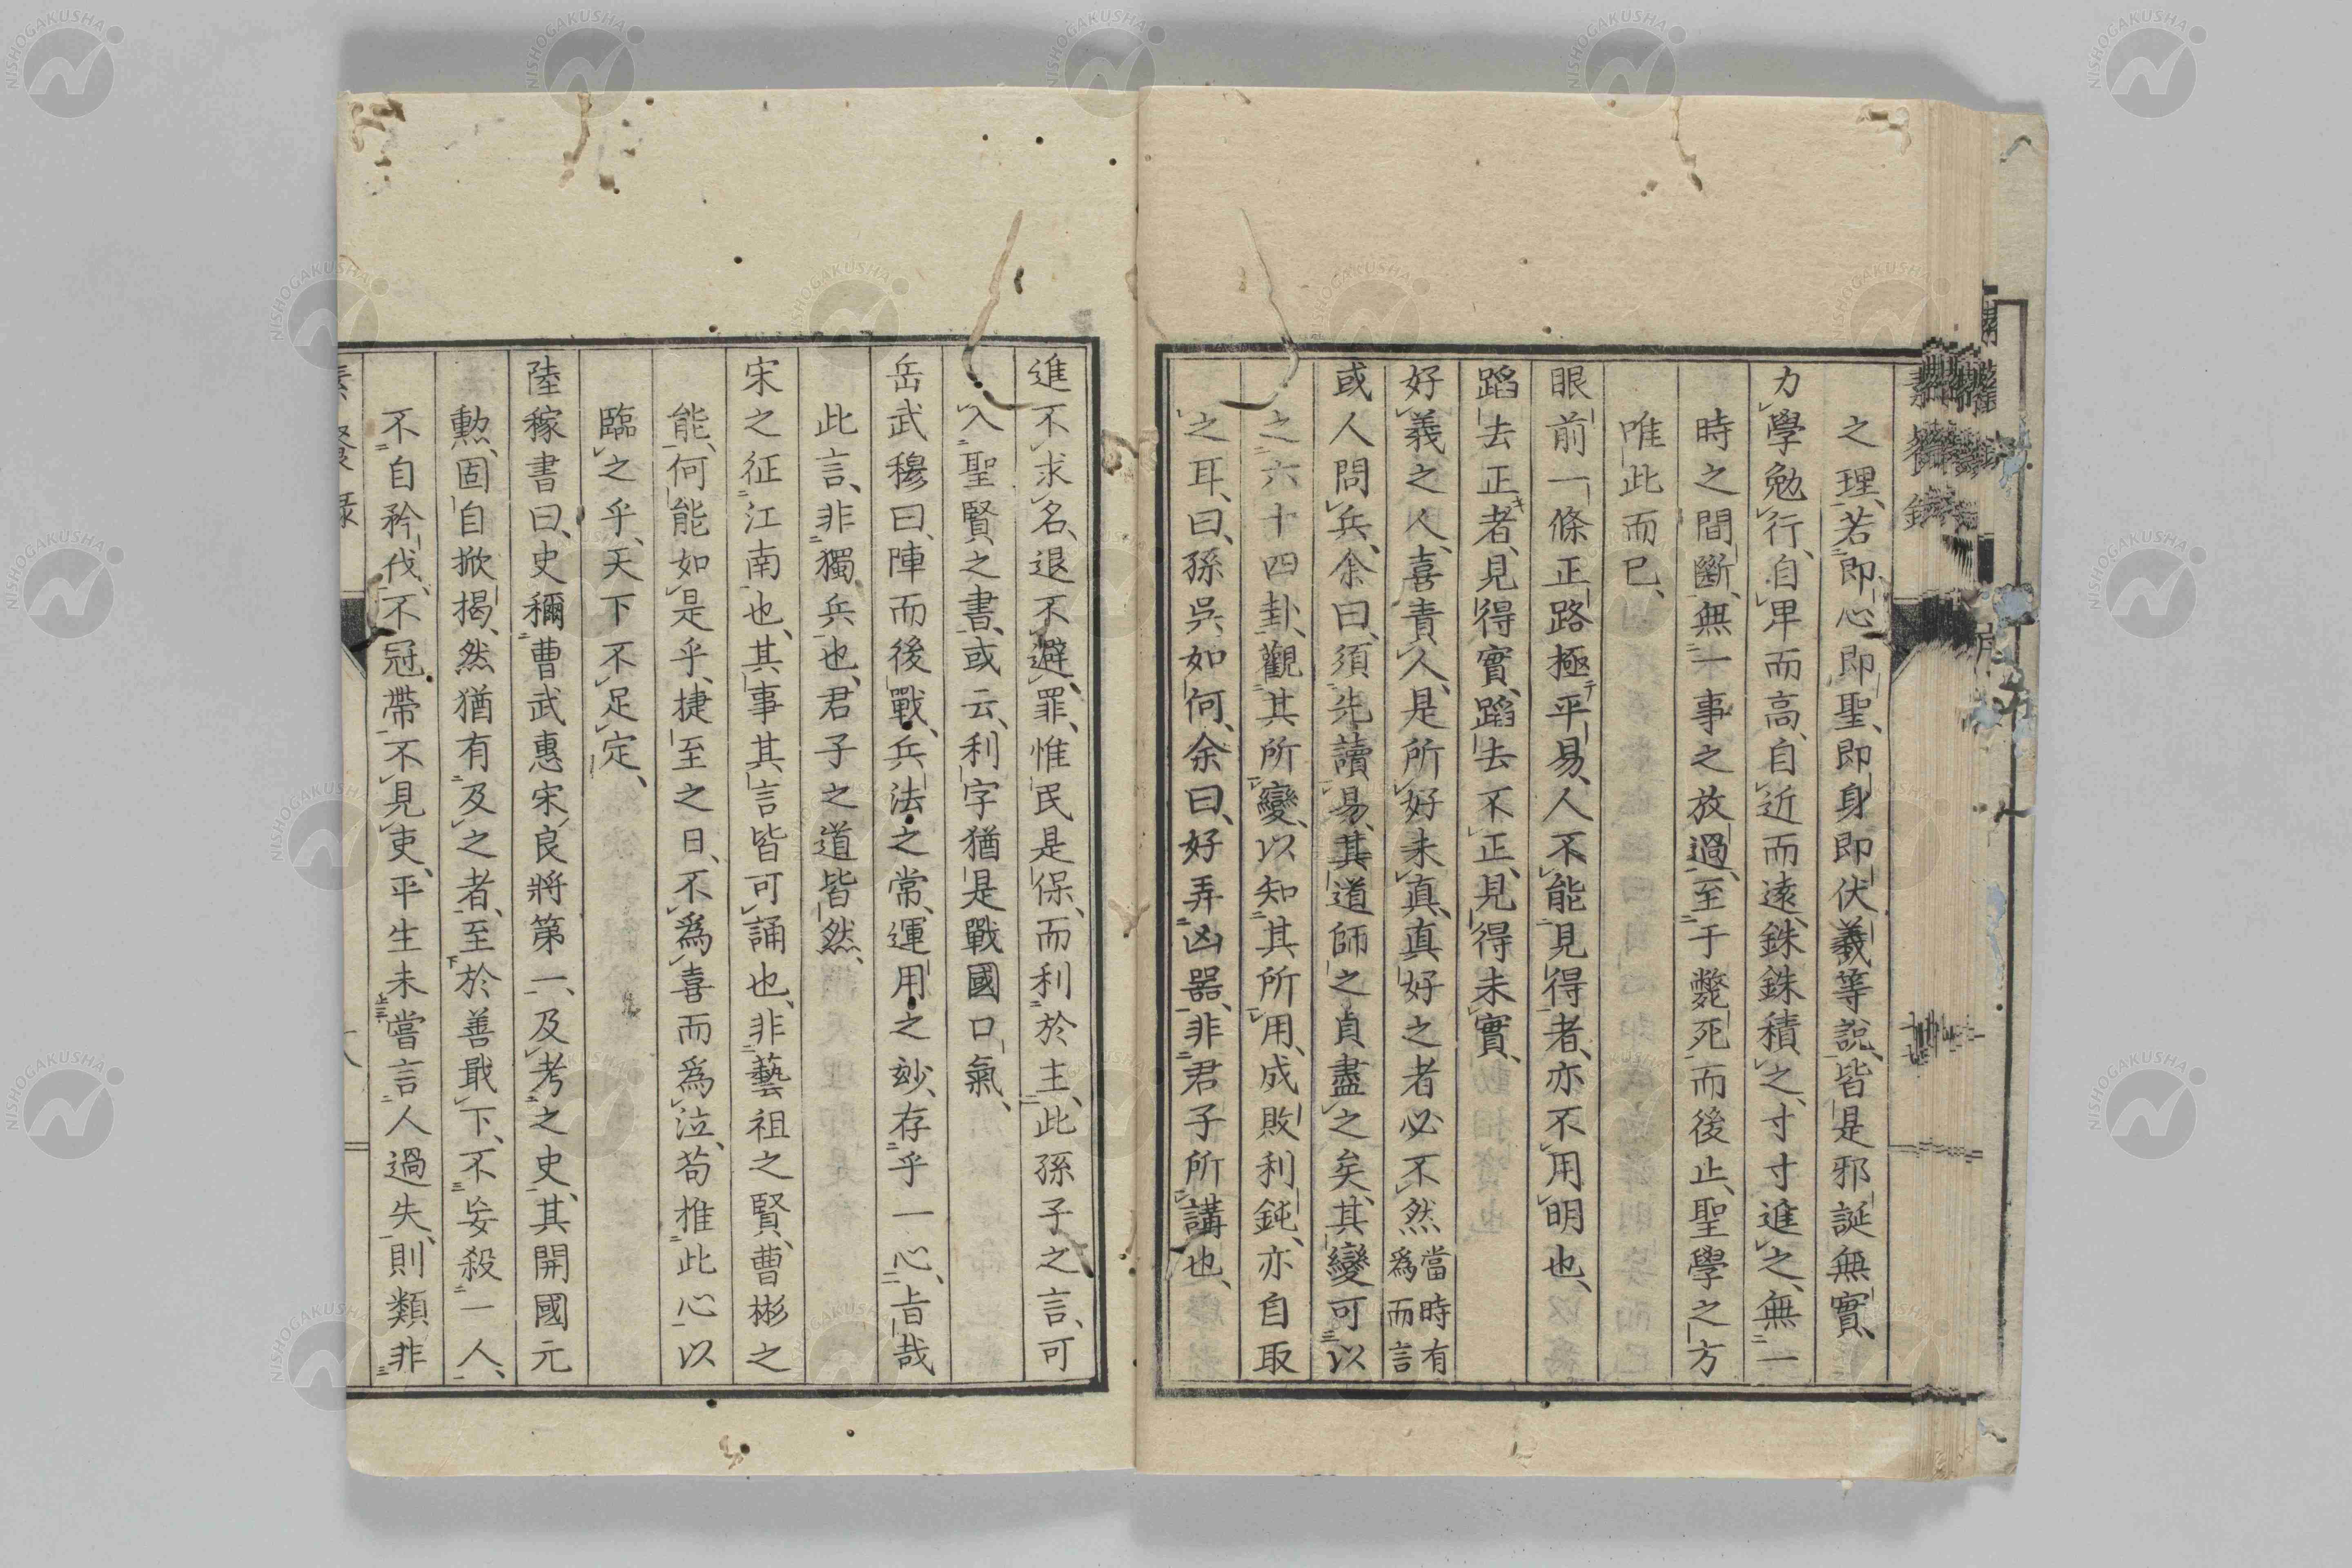 之理、若即心即聖、即身即伏羲等說、皆是邪誕無實、
力學勉行、自卑而高、自近而遠、銖銖積之、寸寸進之、無一
時之間斷、無一事之放過、至于斃死而後止、聖學之方
唯此而已、
眼前一條正路極平易、人不能見得者、亦不用明也、
蹈去正者、見得實、蹈去不正、見得未實、
好義之人、喜責人、是所好未真、真好之者必不然當時有爲而言
或人問兵、余曰、須先讀易、其道師之貞盡之矣、其變可以
之六十四卦、觀其所變、以知其所用、成敗利鈍、亦自取
之耳、曰、孫吳如何、余曰、好弄凶器、非君子所講也、
進不求名、退不避罪、惟民是保、而利於主、此孫子之言、可
入聖賢之書、或云、利字猶是戰國口氣、
岳武穆曰、陣而後戰、兵法之常、運用之妙、存乎一心、旨哉
此言、非獨兵也、君子之道皆然、
宋之征江南也、其事其言皆可誦也、非藝祖之賢、曹彬之
能、何能如是乎、捷至之日、不爲喜而爲泣、苟推此心以
臨之乎、天下不足定、
陸稼書曰、史稱曹武惠宋良將第一、及考之史、其開國元
勲、固自掀揭、然猶有及之者、至於善戢下、不妄殺一人、
不自矜伐、不冠帶不見吏、平生未嘗言人過失、則類非
NISHOGAKUSHA